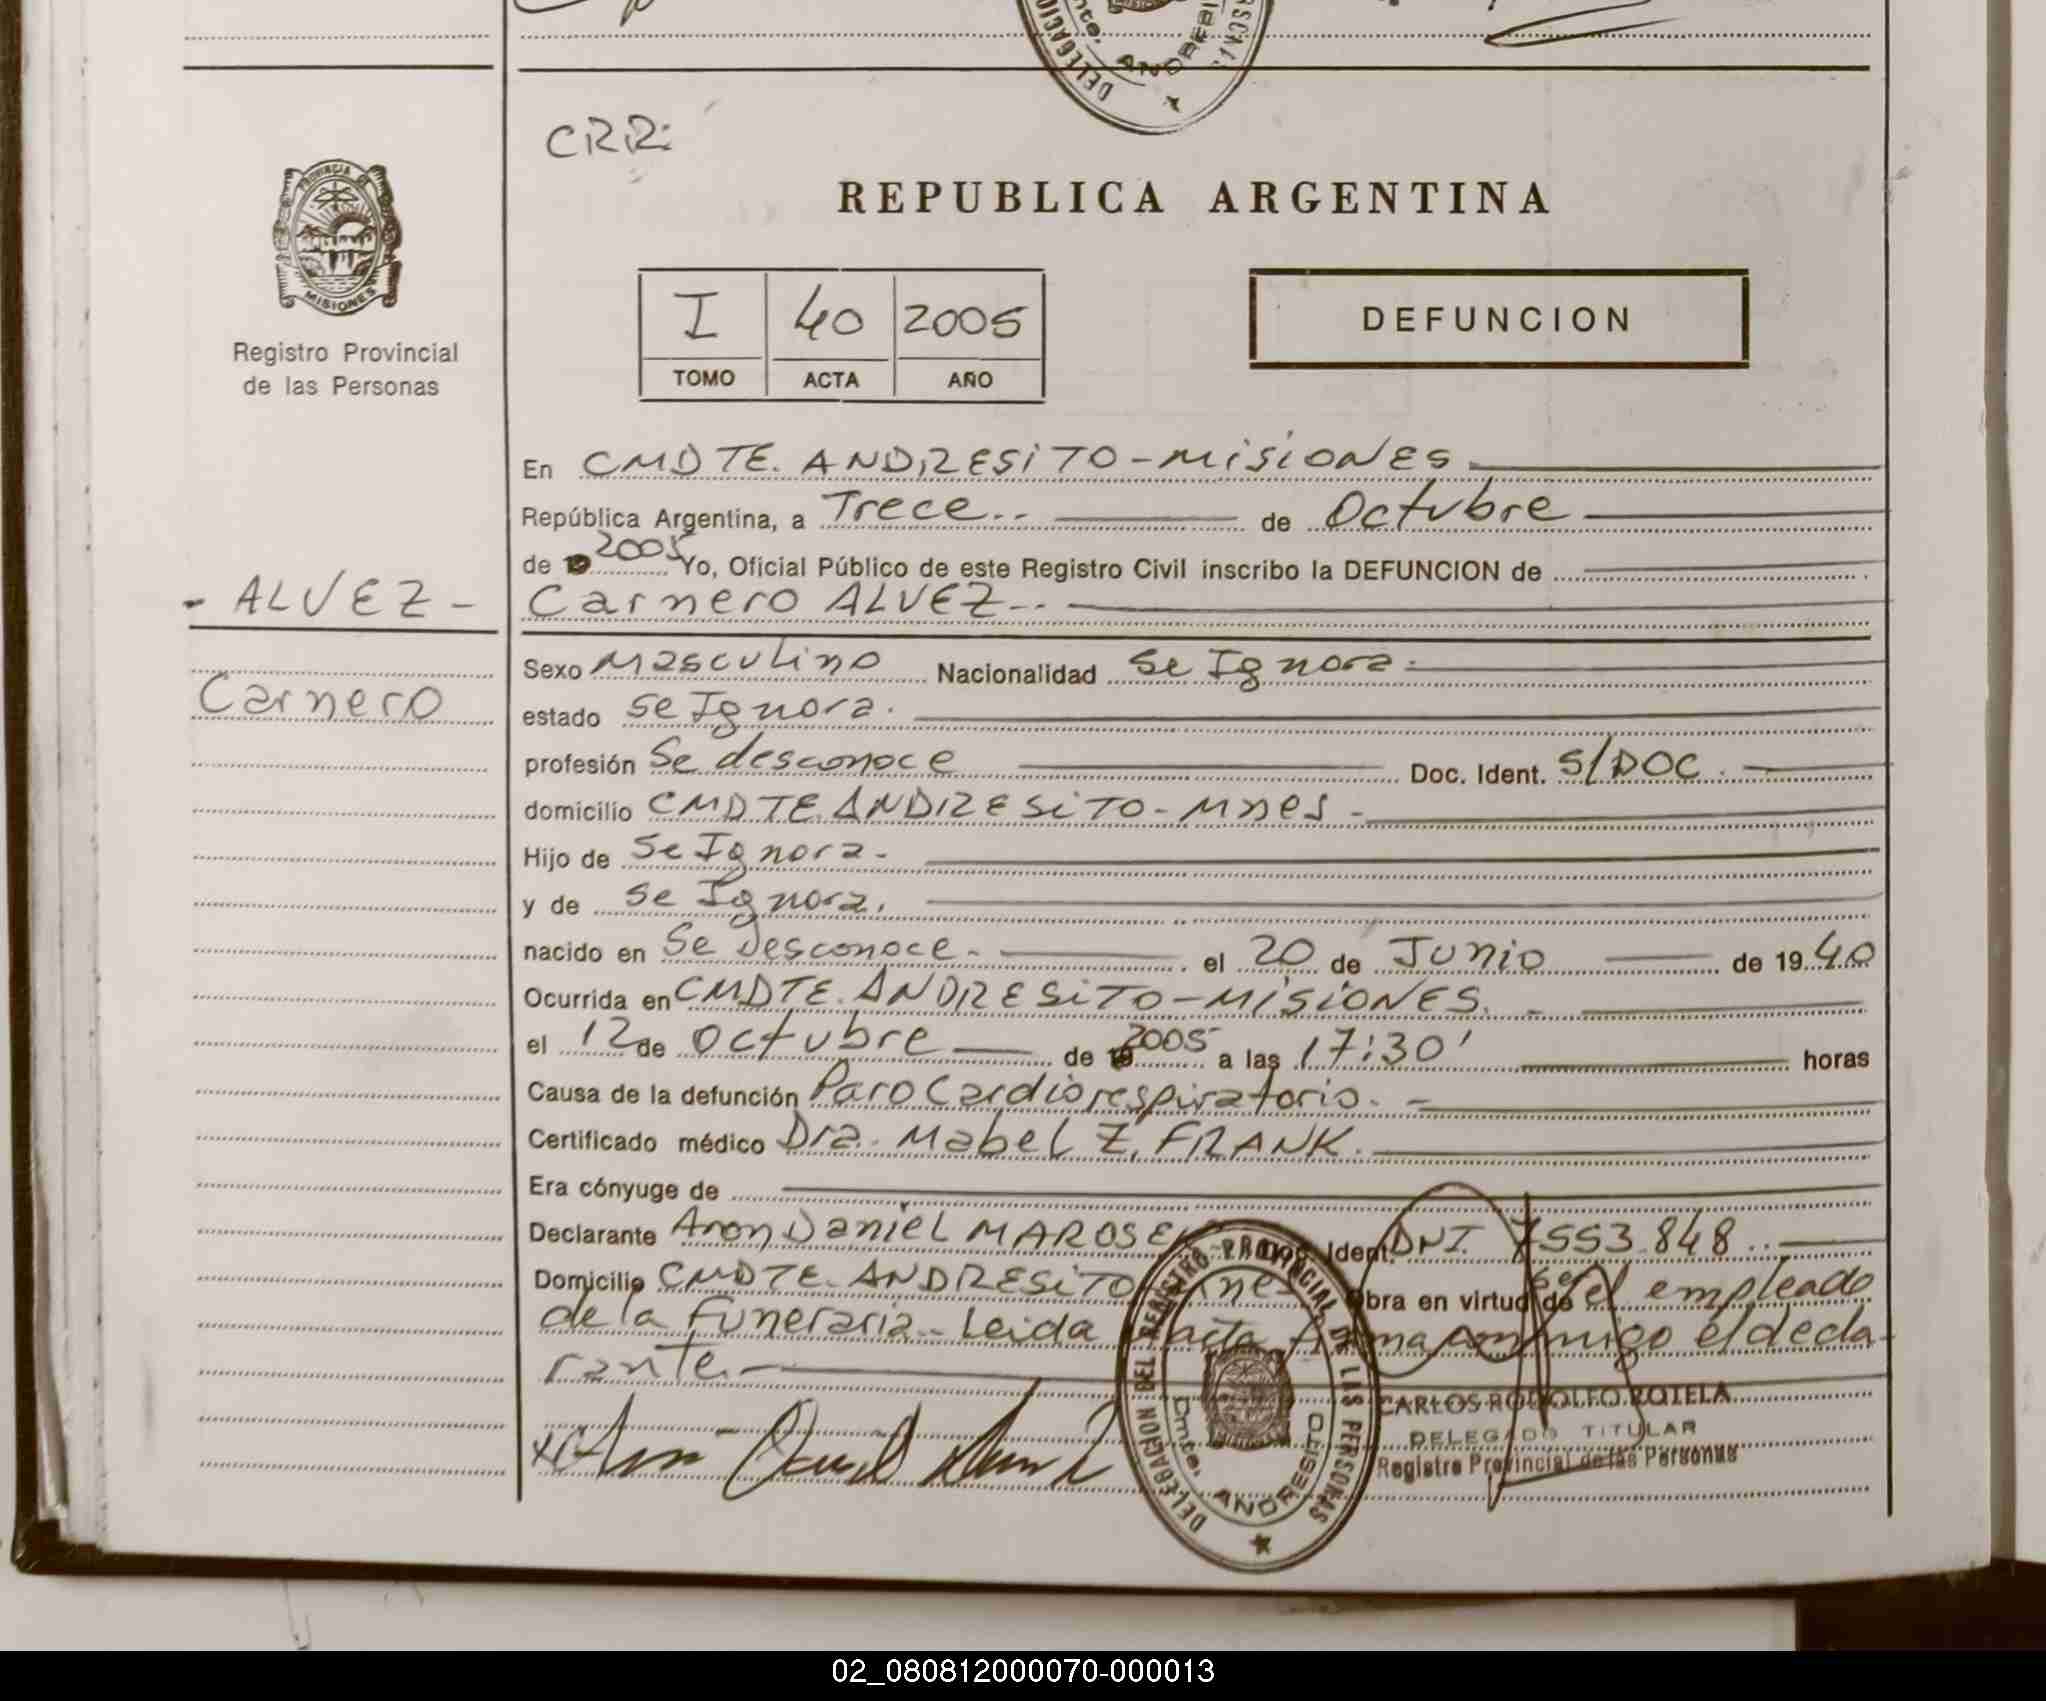 CRR:
PROVINCIA DE
MISIONES
Registro Provincial
de las Personas
REPUBLICA ARGENTINA
I 40 2005
TOMO ACTA AÑO
DEFUNCION
En CMDTE. ANDRESITO - MISIONES
República Argentina, a Trece.. de Octubre
de 2005 Yo, Oficial Público de este Registro Civil inscribo la DEFUNCION de
Carnero ALVEZ..
- ALVEZ -
Carnero
Sexo Masculino Nacionalidad Se Ignora.
estado Se Ignora.
profesión Se desconoce Doc. Ident. S/DOC.
domicilio CMDTE. ANDRESITO - Mnes -
Hijo de Se Ignora -
y de Se Ignora.
nacido en Se desconoce. el 20 de Junio de 1940
Ocurrida en CMDTE. ANDRESITO - MISIONES.
el 12 de Octubre de 2005 a las 17:30' horas
Causa de la defunción Paro Cardiorespiratorio.
Certificado médico Dra. Mabel Z. FRANK.
Era cónyuge de
Declarante Aron Daniel Doc. Ident. DNI 7553.848..
Domicilio CMDTE. ANDRESITO Obra en virtud de ser el empleado
de la Funeraria. Leida acta firma conmigo el decla-
rante.
CARLOS RODOLFO ROTELA
DELEGADO TITULAR
Registro Provincial de las Personas
DELEGACION DEL REGISTRO PROVINCIAL DE LAS PERSONAS
Cmte. ANDRESITO
02_080812000070-000013